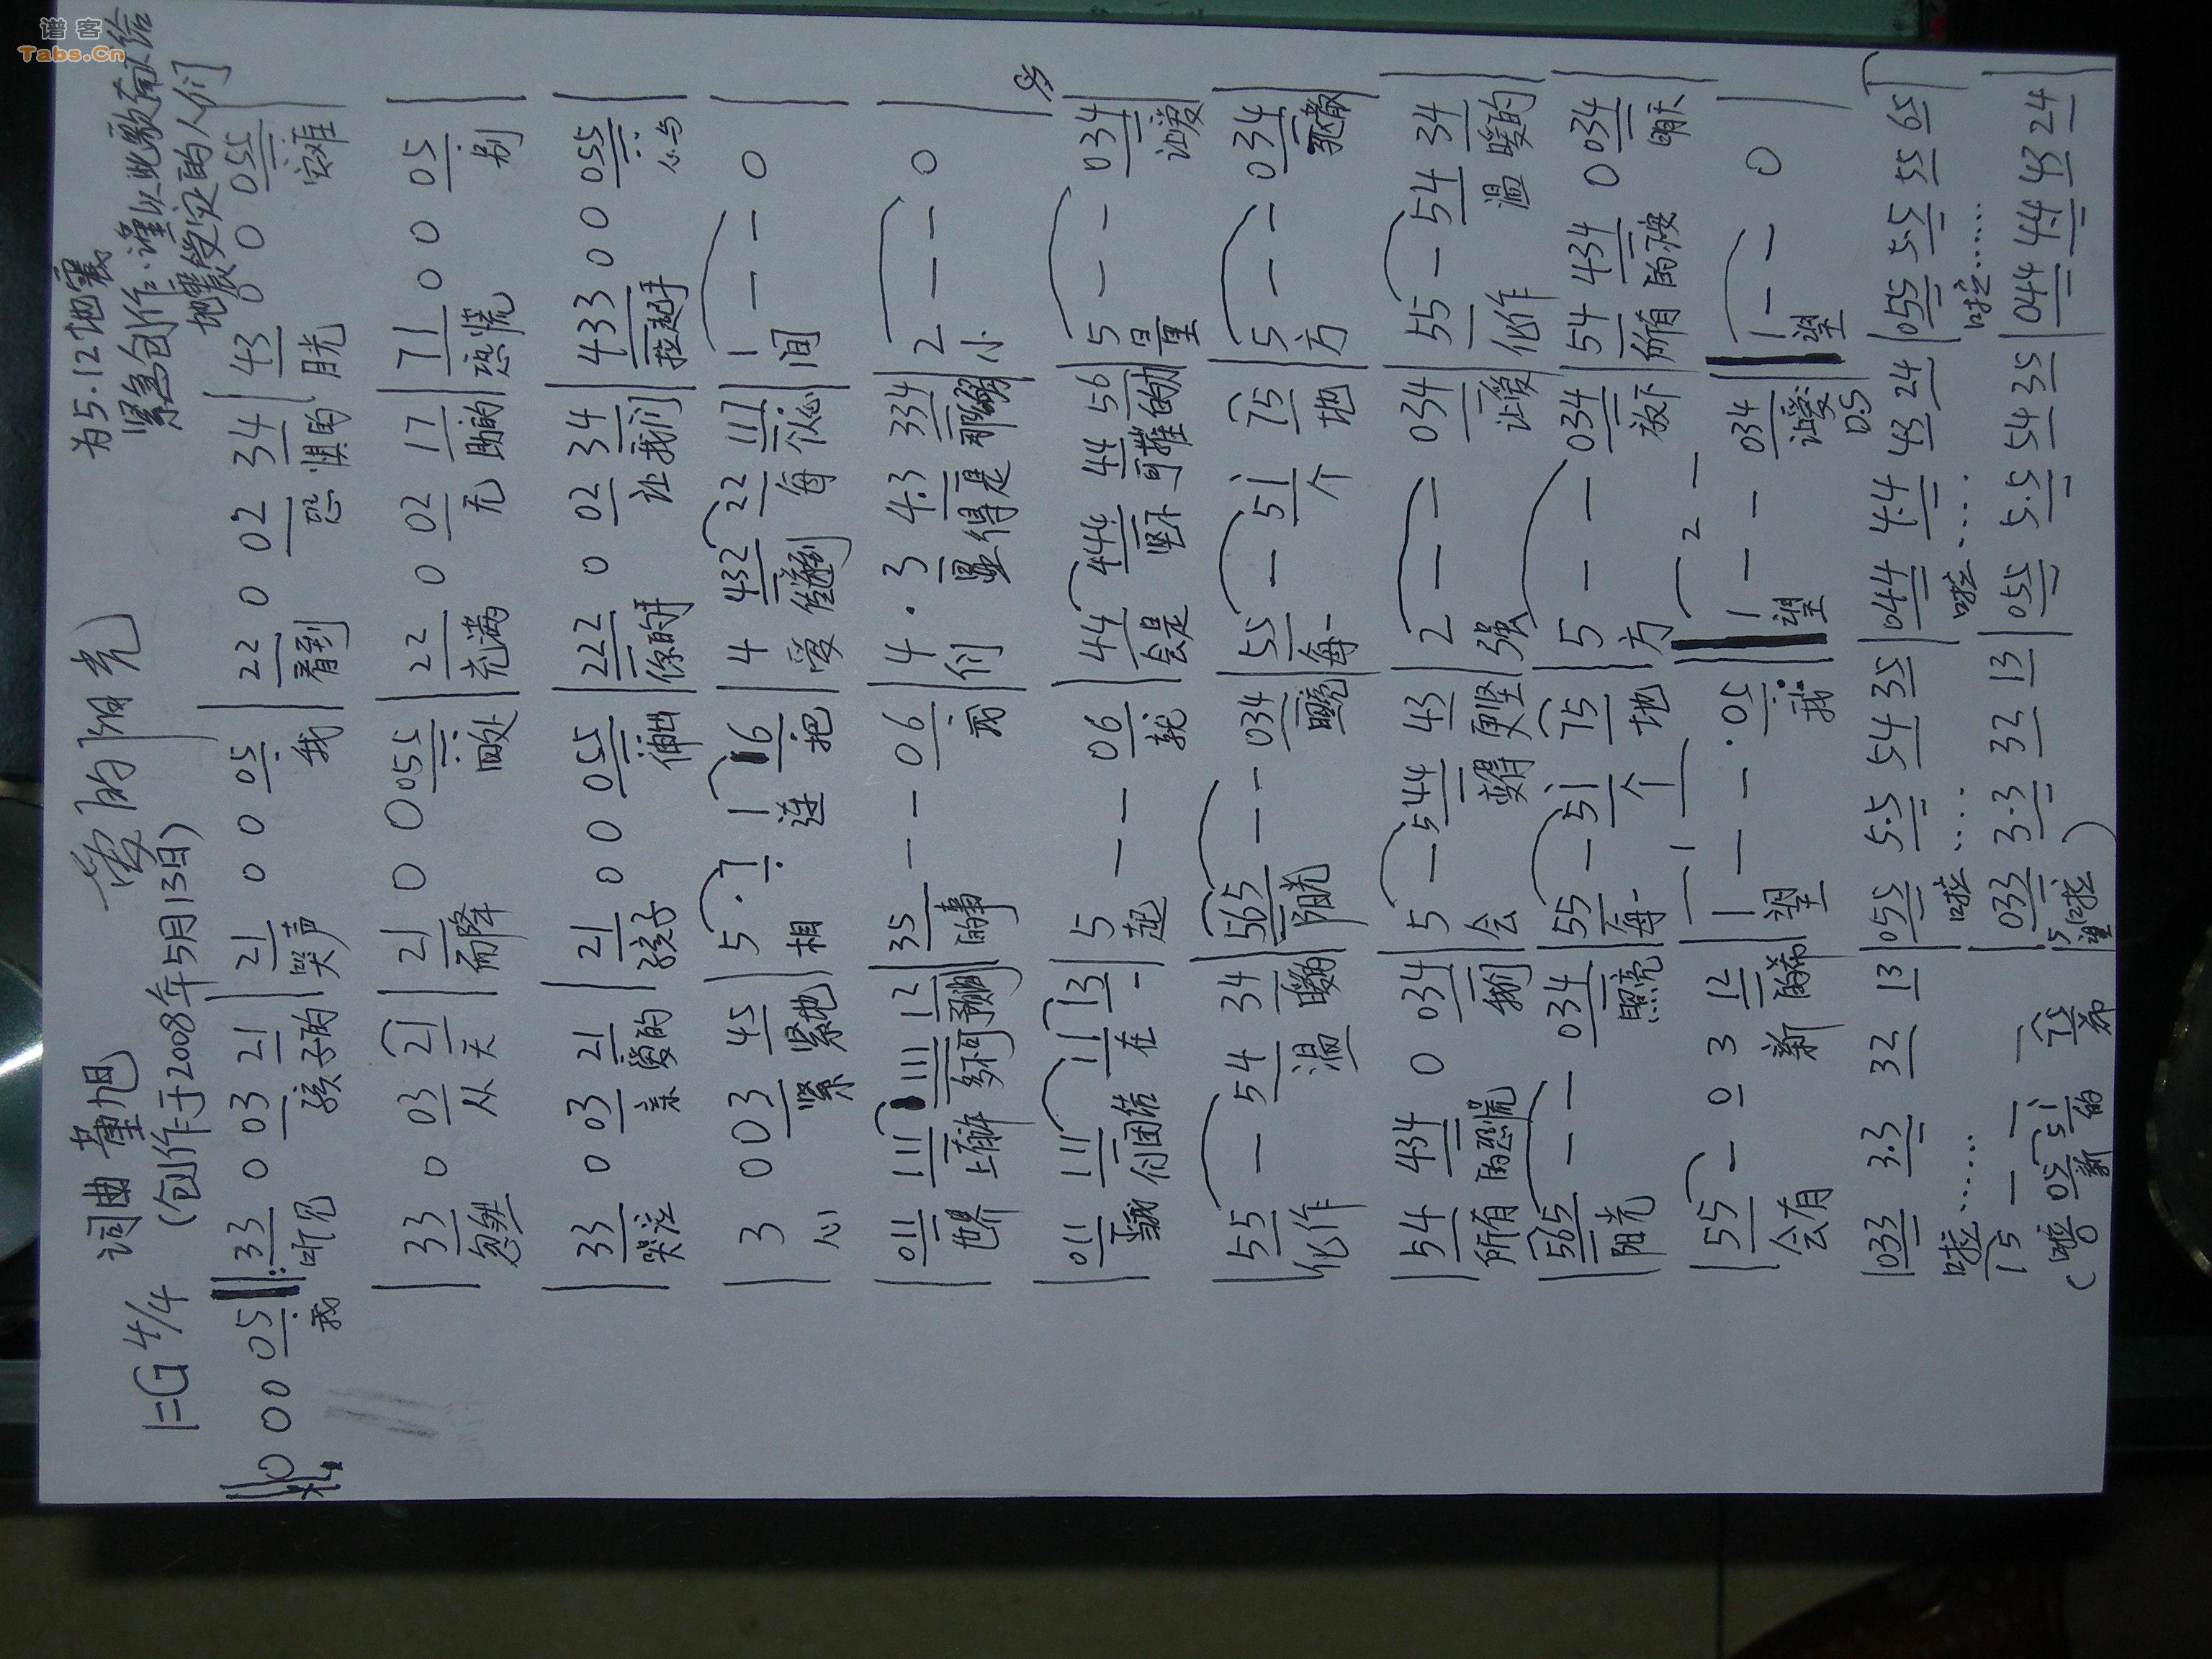 谱客
Tabs.Cn
爱的阳光
为5.12地震
紧急创作.谨以此歌献给
地震受灾的人们
词曲 董旭
1=G 4/4 (创作于2008年5月13日)
0 0 0 05 ‖: 33 0 03 21 | 21 0 0 05 | 22 0 02 34 | 43 0 0 055
我 听见 孩子的 哭声 我 看到 恐惧的 目光 灾难
| 33 0 03 21 | 21 0 0 055 | 22 0 02 17 | 71 0 0 05 |
忽然 从天 而降 四处 充满 无 助的 恐慌 别
| 33 0 03 21 | 21 0 0 055 | 222 0 02 34 | 433 0 0 055 |
哭泣 亲爱的 孩子 伸出 你的手 让我们 拉起手 心与
| 3 0 03 45 | 5 · 7 1 6 | 4 432 22 111 | 1 - - 0 |
心 紧 紧地 相 连 把 爱 传递到 每 个人心 间
| 011 111 111 12 | 35 - - 06 | 4 · 3 4.3 334 | 2 - - 0 |
世界 上有许 多不可预测 的事 我 们 显得是 那么弱 小
| 011 111 11 13 | 5 - - 06 | 44 444 44 56 | 5 - - 034
当我 们团结 在 一 起 就 会是 坚不 可摧 的力 量 让爱
| 55 - 54 34 | 565 - - 034 | 55 - 51 75 | 5 - - 034 |
化作 温 暖的 阳光 照亮 每一 个 地 方 驱散
| 54 434 0 034 | 5 - 544 43 | 2 - - 034 | 55 - 54 34 |
所有 的恐慌 我们 会 变得 更坚 强 让爱 化作 温 暖的
| 565 - - 034 | 55 - 51 75 | 5 - - 034 | 54 434 0 034 |
阳光 照亮 每一 个 地 方 放下 所有 的不安 明天
| 55 - 0 3 12 | 1 - - ·05 :‖ 1 - - 034 ‖ 1 - - 0 |
会有 新 的希 望 我 望 让爱 望
D.S
| 033 3.3 32 13 | 055 5.5 54 35 | 044 4.4 43 24 | 055 5.5 55 65
啦...... 啦.... 啦.... 啦......
15 - - - | 033 3.3 32 13 | 055 5.5 54 35 | 044 44 43 24 |
(啦 05 51 71 5 啦)
新 的 希 望